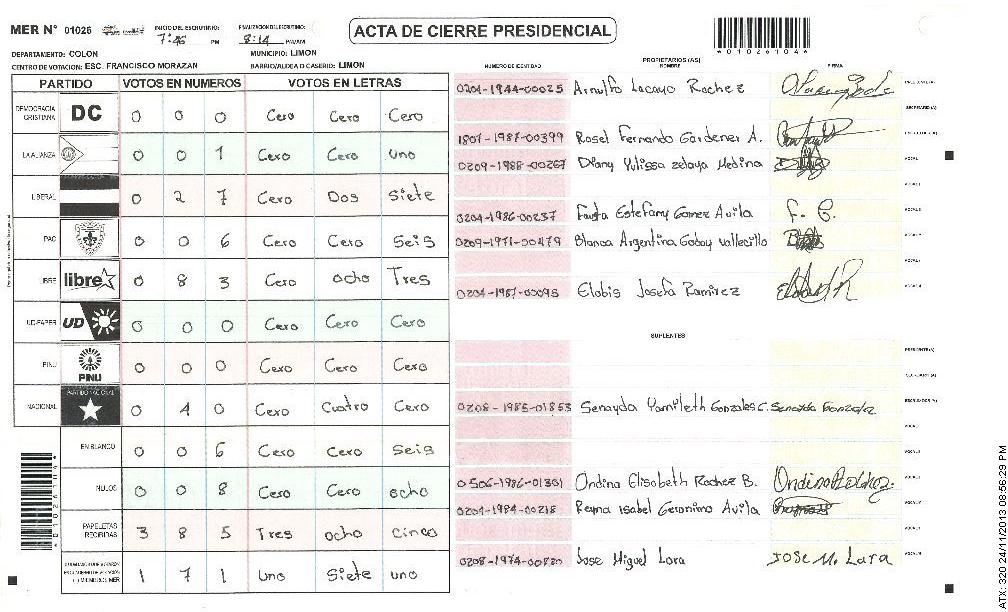 MER N° 01026
INICIO DEL ESCRUTINIO: 7:46 PM
FINALIZACION DEL ESCRUTINIO: 8:14 PM/AM
ACTA DE CIERRE PRESIDENCIAL
*01026104*
DEPARTAMENTO: COLON
MUNICIPIO: LIMON
CENTRO DE VOTACION: ESC. FRANCISCO MORAZAN
BARRIO/ALDEA O CASERIO: LIMON
PARTIDO VOTOS EN NUMEROS VOTOS EN LETRAS
DEMOCRACIA CRISTIANA DC 0 0 0 Cero Cero Cero
LA ALIANZA 0 0 1 Cero Cero uno
LIBERAL 0 2 7 Cero Dos Siete
PAC 0 0 6 Cero Cero Seis
LIBRE libre 0 8 3 Cero ocho Tres
UD-FAPER UD 0 0 0 Cero Cero Cero
PINU PINU 0 0 0 Cero Cero Cero
NACIONAL PARTIDO NACIONAL 0 4 0 Cero Cuatro Cero
EN BLANCO 0 0 6 Cero Cero Seis
NULOS 0 0 8 Cero Cero ocho
PAPELETAS RECIBIDAS 3 8 5 Tres ocho cinco
1 7 1 uno Siete uno
PROPIETARIOS (AS)
NUMERO DE IDENTIDAD NOMBRE FIRMA
0204-1944-00025 Arnulfo Lacayo Rochez
1807-1987-00399 Rosel Fernando Gardener A.
0209-1988-00267 Diany Yulissa zelaya Medina
0204-1986-00237 Fausta Estefany Gomez Avila F. G.
0209-1971-00479 Blanca Argentina Godoy vallecillo
0204-1987-00095 Elobis Josefa Ramirez
SUPLENTES
0208-1985-01853 Senayda Yamileth Gonzales C. Senayda Gonzalez
0506-1986-01301 Ondina Elisabeth Rochez B.
0204-1984-00218 Reyna Isabel Geronimo Avila
0208-1974-00820 Jose Miguel Lara JOSE M. Lara
ATX: 320 24/11/2013 08:56:29 PM